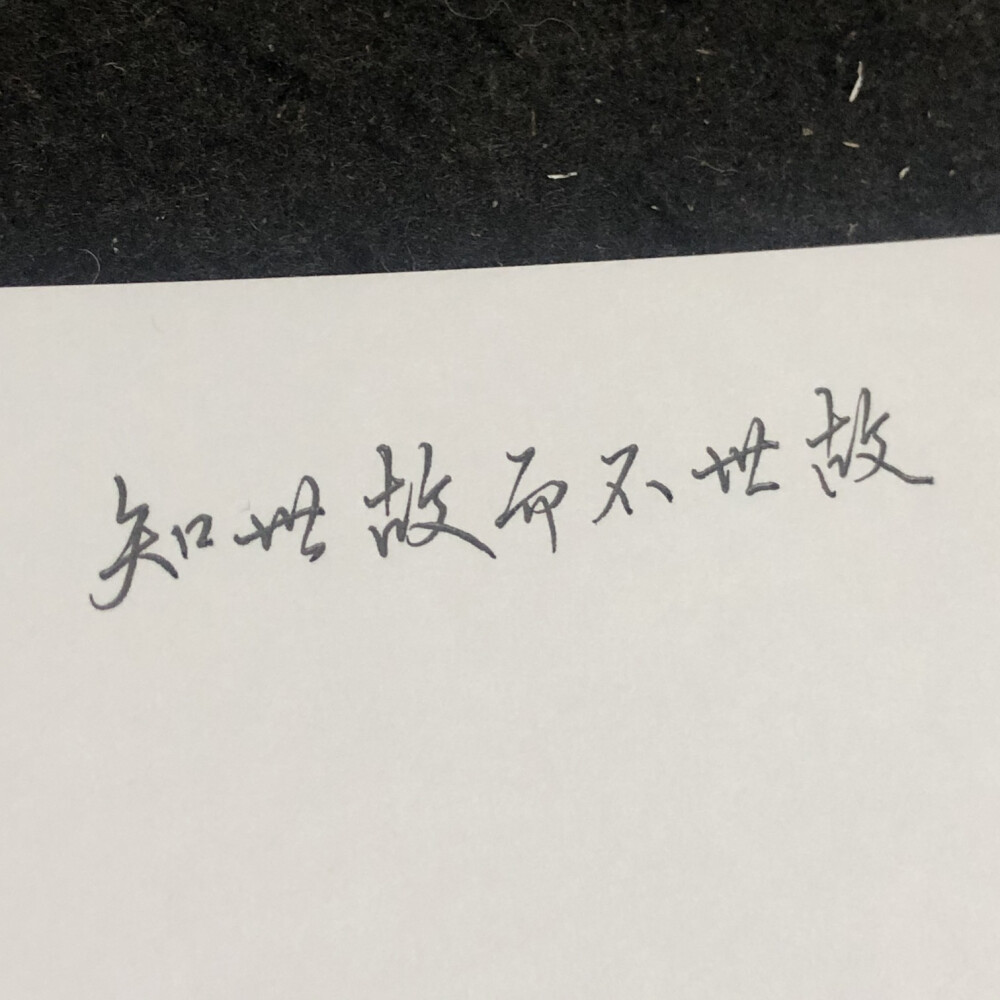 知世故而不世故